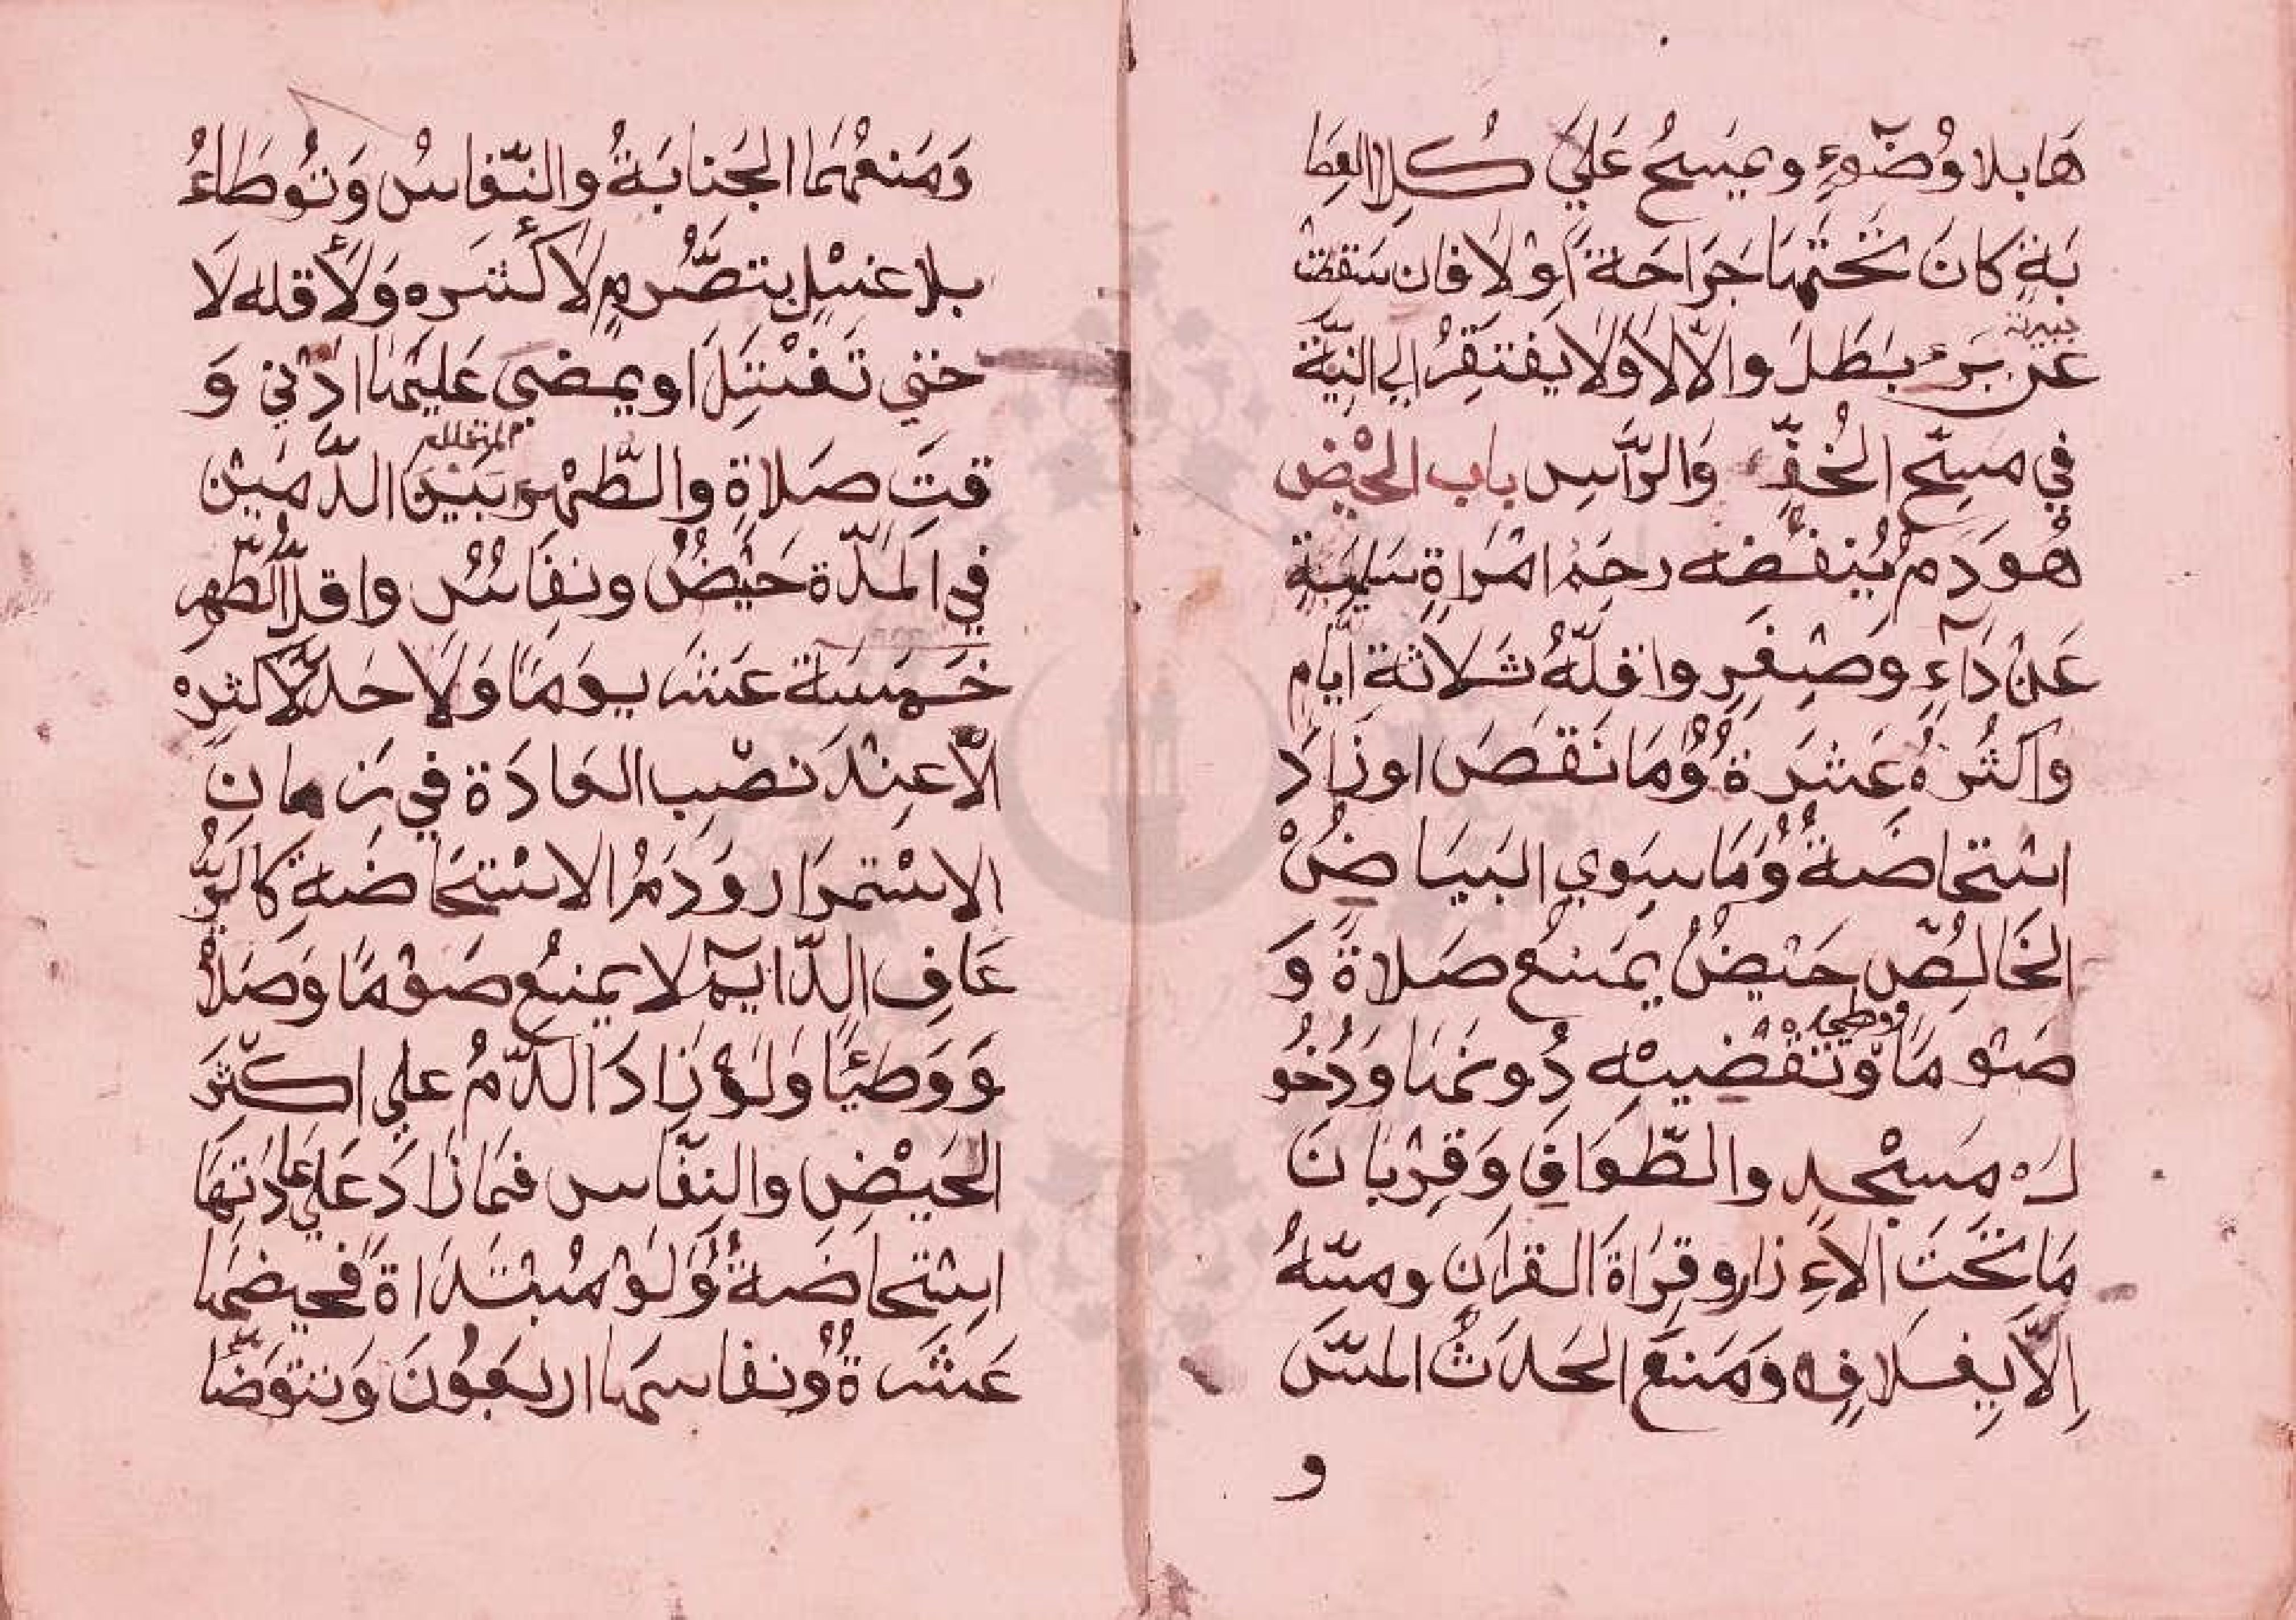 هَا بلا وُضُوءٍ ويمسَحُ عَلَي كُلِ العِصَا
بَةِ كانَ تحتَهَا جَرَاحَة اَوْ لَا فان سَقطت
جبيرته
عَن بَرءٍ بَطَلَ والّا لَا وَلَا يفتقِرُ الي النِيَّة
في مَسحِ الخُفِّ وَالرَّاسِ باب الحَيْض
هُوَ دَمٌ يُنفضُه رحِمُ امْرَاةٍ سَلِيمَةٍ
عَنْ دَآءٍ وَصِغَرٍ واقلّهُ ثَلَاثة ايّام
وَاكثرُهُ عَشَرَةٌ وُمَا نَقَصَ اوزَادَ
استحاضَةٌ وُمَا سِوي البَيَاضُ
الخَالِصّ حَيْضٌ يمنَع صَلاةً وَ
ووطي
صَوْمًا وَتَقْضِيْه دُونهَا وَدُخُو
لَه مَسْجِدٍ والطَّوَافِ وَقِرْبَانَ
مَا تَحَتَ الاءِزارِ وقِرَاةَ القرانِ ومسّهُ
اِلّا بِغلافِه وَمَنَعَ الحَدَثُ المسَّ
و
وَمَنعهُمَا الجَنابَةُ والنِّفاسُ وَتُوطَاءُ
بلا غسْلٍ بتصَرُّمٍ لأكثرِه وَلأقله لَا
حتي تَغتَسِلَ او يمضيَ عَليهَا ادْني وَ
المتخلل
قتَ صَلاةٍ والطُّهْرُ بَيْنَ الدَّمَيْن
في المدّة حَيْضٌ ونفَاسٌ واقلّ الطّهرِ
خَمسَة عَشَر يومًا وَلَا حدّ لاكثرِهْ
الّا عِنْدَ نصْبِ العَادَة في زَمانِ
الاسْتمرَارِ وَدَمُ الاسْتحَاضةِ كالرُّ
عَافِ الدّايمِ لا يمنعُ صَوْمًا وَصَلَاً
وَوَطئًا وَلَوْ زَادَ الدَّمُ علي اكثَرَ
الحَيْضِ والنِفّاسِ فمَا زَادَ عَلي عادَتِهَا
اسْتحاضَةٌ وُلَوْ مُبْتَدَاةً فحيضهَا
عَشَرةٌ وُنفاسهَا اربعُونَ وَتتوَضّا